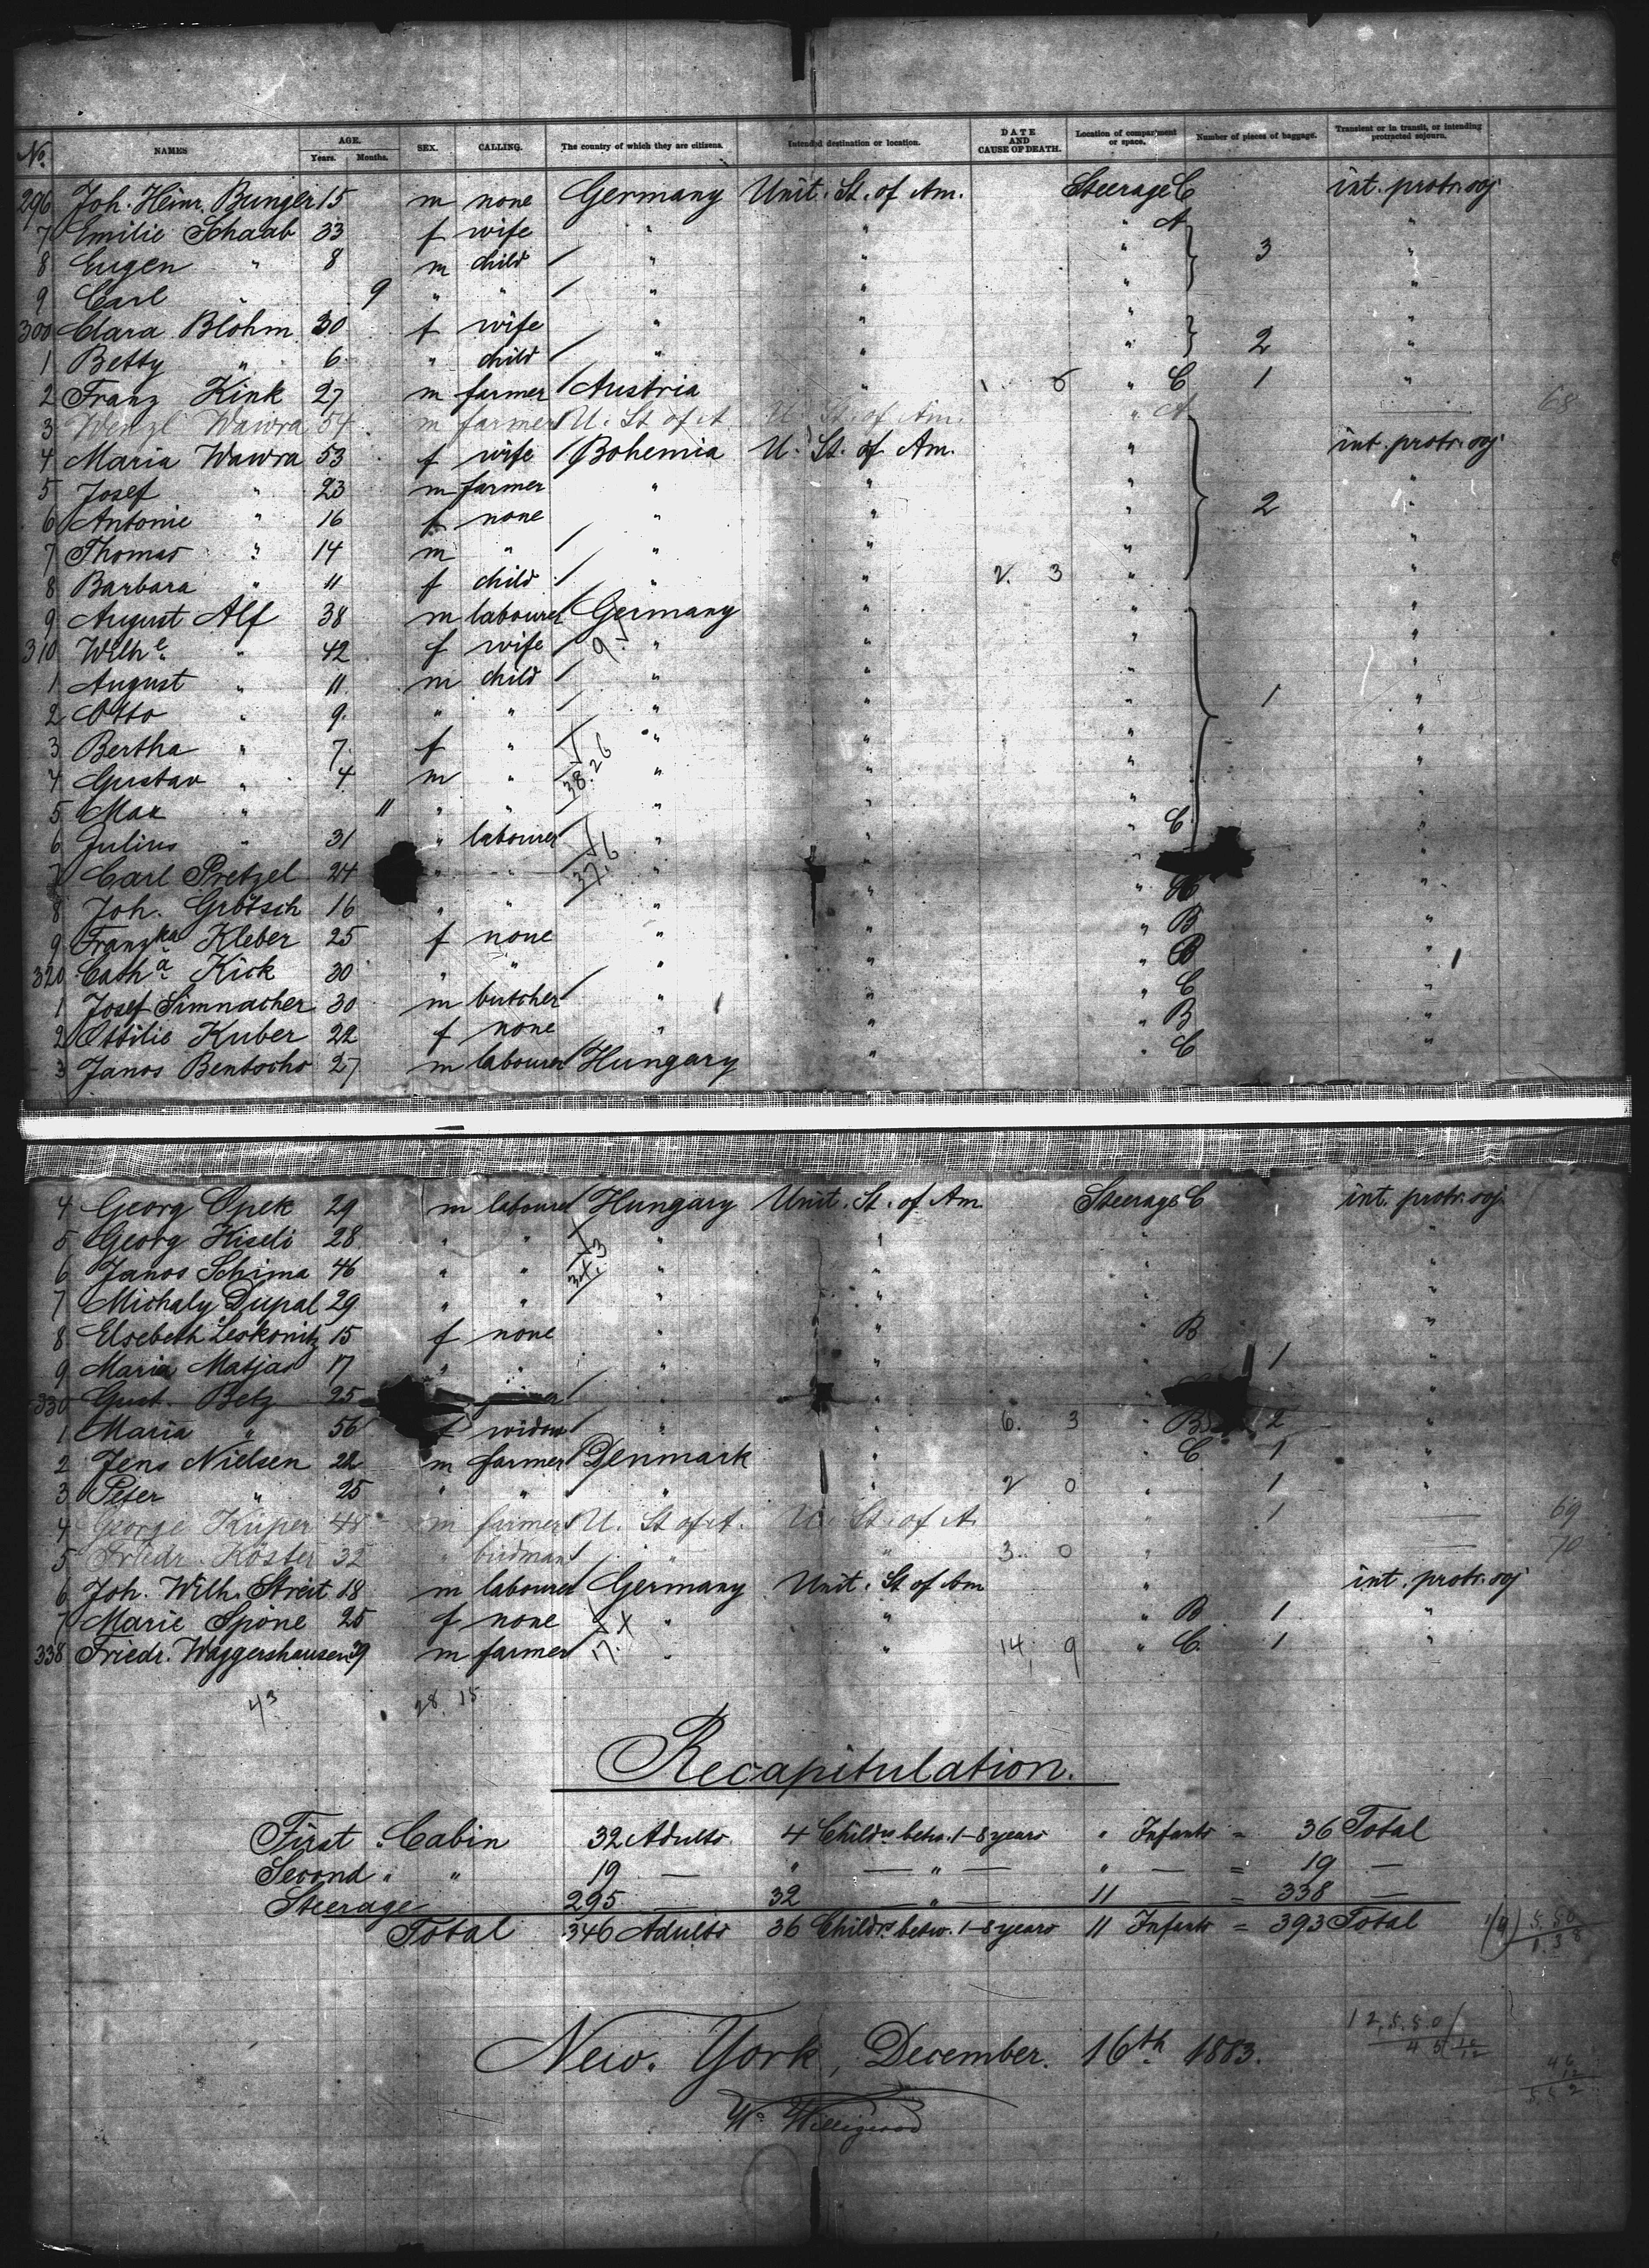 No. NAMES AGE. Years. Months. SEX. CALLING. The country of which they are citizens. Intended destination or location. DATE AND CAUSE OF DEATH. Location of compartment or space. Number of pieces of baggage. Transient or in transit, or intending protracted sojourn.
296 Joh. Heinr. Bunger 15 m none Germany Unit. St. of Am. Steerage C int. protr. soj.
7 Emilie Schaab 33 f wife " " " A "
8 Eugen " 8 m child / " " " 3 "
9 Carl " 9 " " / " " " "
300 Clara Blohm 30 f wife " " " "
1 Betty " 6 " child / " " " 2 "
2 Franz Kink 27 m farmer / Austria " " C 1 "
3 Wenzl Wawra 54 m farmer U. St. of A. U. St. of Am. " A — 68
4 Maria Wawra 53 f wife / Bohemia U. St. of Am. " int. protr. soj
5 Josef " 23 m farmer " " " "
6 Antonie " 16 f none " " " 2 "
7 Thomas " 14 m " / " " " "
8 Barbara " 11 f child / " " 2. 3 " "
9 August Alf 38 m labourer / Germany " " "
310 Wilhe " 42 f wife / " " " "
1 August " 11 m child / " " " 1
2 Otto " 9 " " / " " " "
3 Bertha " 7 f " " " " "
4 Gustav " 4 m " 38.26 " " " "
5 Max " 11 " " " " " "
6 Julius " 31 " labourer " " " C "
7 Carl Pretzel 24 " " 37.6 " "
8 Joh. Grötsch 16 " " " " " "
9 Franzka Kleber 25 f none " " " B "
320 Catha Kick 30 " " " " " B "
1 Josef Simnacher 30 m butcher / " " " C "
2 Ottilie Kuber 22 f none " " " B "
3 Janos Bentocho 27 m labourer / Hungary " " C "
4 Georg Opek 29 m labourer / Hungary Unit. St. of Am. Steerage C int. protr. soj.
5 Georg Kiseli 28 " " " " " "
6 Janos Schima 46 " " " " " "
7 Michaly Dupal 29 " " " " " "
8 Elsebeth Leskonitz 15 f none " " " B "
9 Maria Matjas 17 " " " " " 1 "
330 Gust. Betz 25 / " "
1 Maria " 56 f widow / " " 6. 3 " B 2 "
2 Jens Nielsen 22 m farmer / Denmark " " C 1 "
3 Peter " 25 " " " " 2 0 " 1 "
4 George Küper 48 m farmer U. St of A. U. St. of A. " 1 — 69
5 Friedr. Köster 32 " birdman / " " 3 0 " — 70
6 Joh. Wilh. Streit 18 m labourer Germany Unit. St of Am " int. protr. soj
7 Marie Spone 25 f none " " " B 1 "
338 Friedr. Waggershausen 39 m farmer " " 14. 9 " C. 1 "
43 28 15
Recapitulation.
First Cabin 32 Adults. 4 Childrn betw. 1-8 years " Infants = 36 Total
Second " " 19 — " — " — " — = 19 —
Steerage 295 — 32 — " — 11 — = 338 —
Total 346 Adults 36 Childrn betw. 1-8 years 11 Infants = 393 Total
New York, December. 16th 1883.